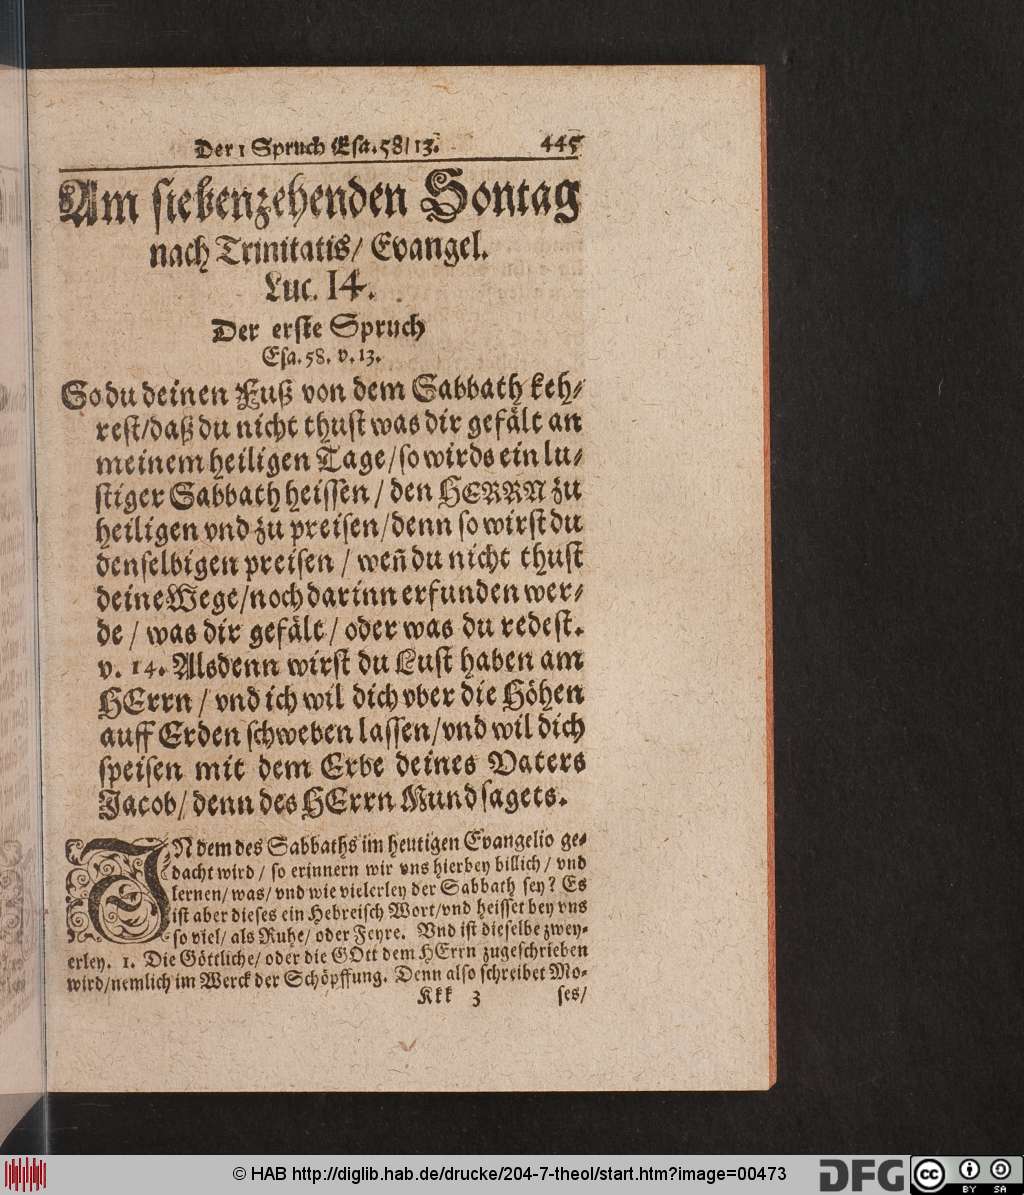 Der 1 Spruch Esa. 58/ 13. 445
Am siebenzehenden Sontag
nach Trinitatis/ Evangel.
Luc. 14.
Der erste Spruch
Esa. 58. v. 13.
So du deinen Fuß von dem Sabbath keh-
rest/daß du nicht thust was dir gefält an
meinem heiligen Tage/so wirds ein lu-
stiger Sabbath heissen / den HERRN zu
heiligen vnd zu preisen/denn so wirst du
denselbigen preisen / weñ du nicht thust
deine Wege/noch darinn erfunden wer-
de / was dir gefält / oder was du redest.
v. 14. Alsdenn wirst du Lust haben am
HErrn / vnd ich wil dich vber die Höhen
auff Erden schweben lassen/vnd wil dich
speisen mit dem Erbe deines Vaters
Jacob/ denn des HErrn Mund sagets.
IN dem des Sabbaths im heutigen Evangelio ge-
dacht wird / so erinnern wir vns hierbey billich / vnd
lernen/ was/ vnd wie vielerley der Sabbath sey? Es
ist aber dieses ein Hebreisch Wort/vnd heisset bey vns
so viel/ als Ruhe/ oder Feyre. Vnd ist dieselbe zwey-
erley. 1. Die Göttliche/ oder die GOtt dem HErrn zugeschrieben
wird/nemlich im Werck der Schöpffung. Denn also schreibet Mo-
Kkk 3 ses/
© HAB http://diglib.hab.de/drucke/204-7-theol/start.htm?image=00473
DFG
cc BY SA